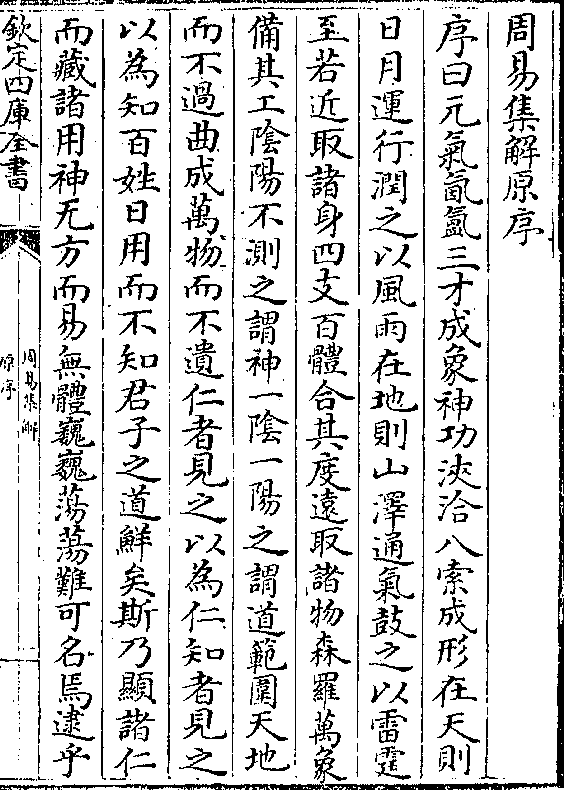 周易集解原序
序曰元氣氤氳三才成象神功浹洽八索成形在天則
日月運行潤之以風雨在地則山澤通氣鼓之以雷霆
至若近取諸身四支百體合其度遠取諸物森羅萬象
備其工陰陽不測之謂神一陰一陽之謂道範圍天地
而不過曲成萬物而不遺仁者見之以為仁知者見之
以為知百姓日用而不知君子之道鮮矣斯乃顯諸仁
而藏諸用神无方而易無體巍巍蕩蕩難可名焉逮乎
欽定四庫全書
周易集解
原序